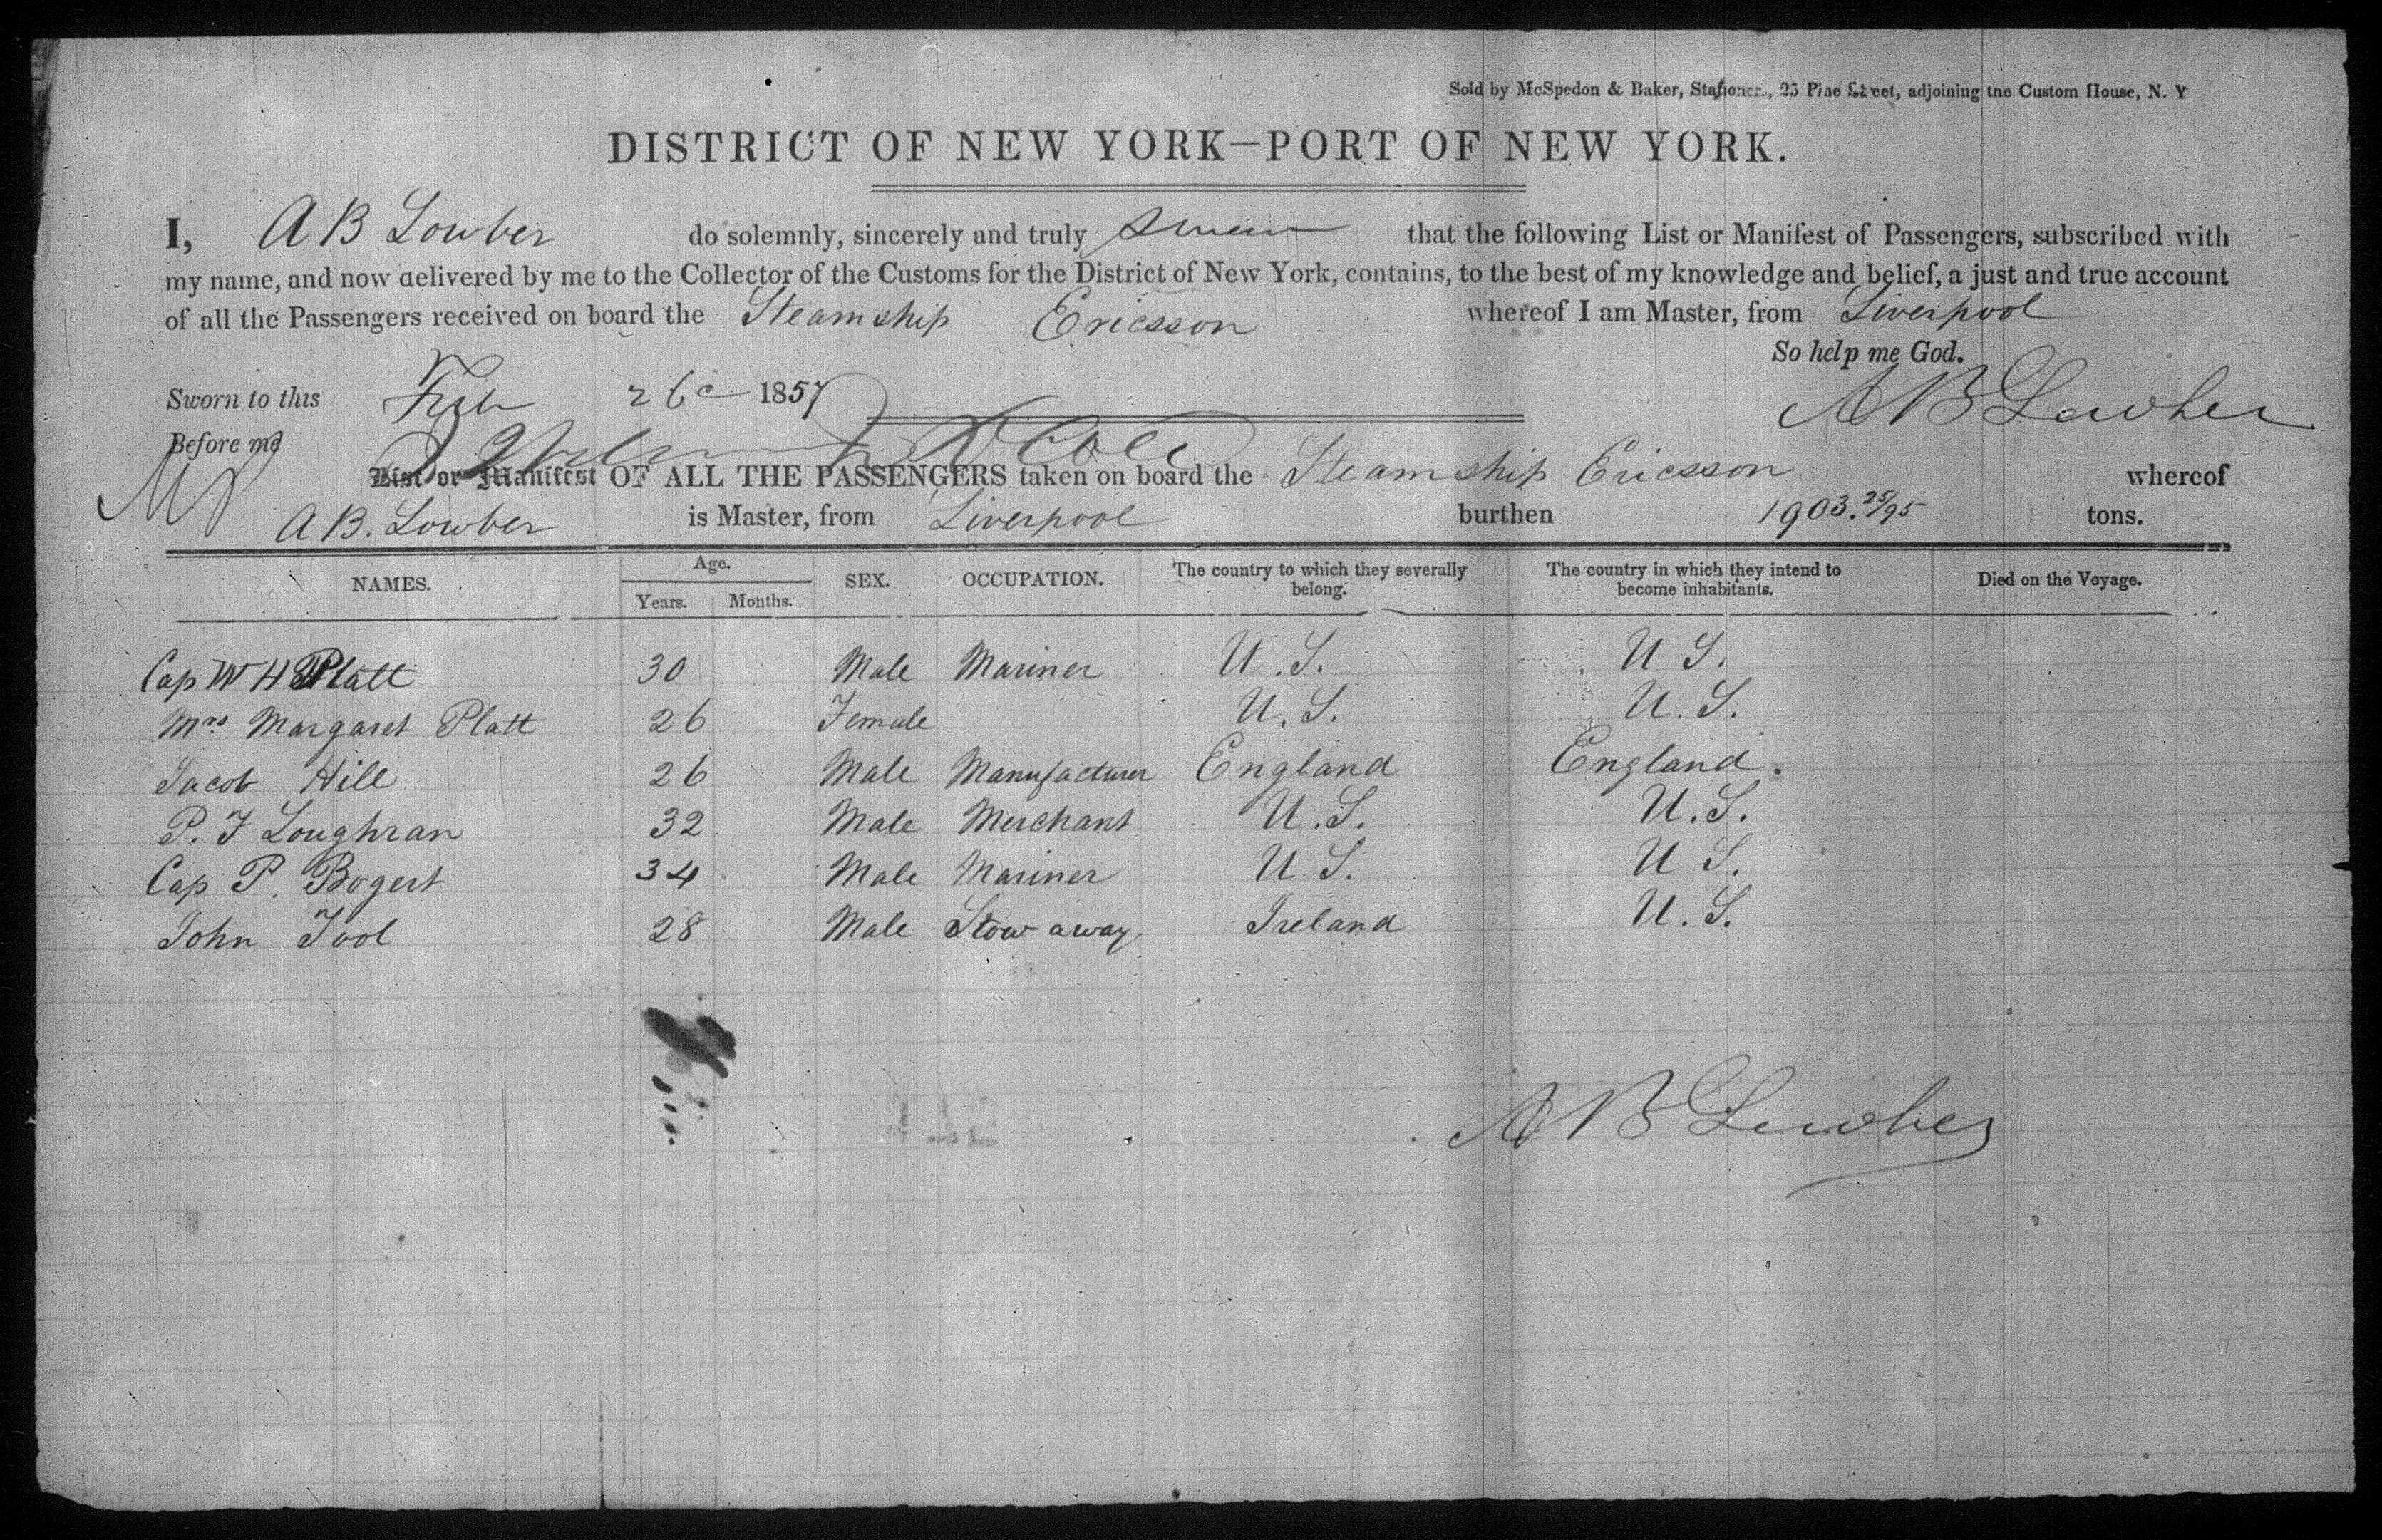 Sold by McSpedon & Baker, Stationers, 25 Pine Street, adjoining the Custom House, N. Y
DISTRICT OF NEW YORK—PORT OF NEW YORK.
I, A B Lowber do solemnly, sincerely and truly swear that the following List or Manifest of Passengers, subscribed with
my name, and now delivered by me to the Collector of the Customs for the District of New York, contains, to the best of my knowledge and belief, a just and true account
of all the Passengers received on board the Steamship Ericsson whereof I am Master, from Liverpool
So help me God.
Sworn to this Feb 26 1857 A B Lowber
Before me
List or Manifest OF ALL THE PASSENGERS taken on board the Steam ship Ericsson whereof
A B. Lowber is Master, from Liverpool burthen 1903.25/95 tons.
NAMES. Age. Years. Months. SEX. OCCUPATION. The country to which they severally belong. The country in which they intend to become inhabitants. Died on the Voyage.
Cap W H Platt 30 Male Mariner U.S. U S.
Mrs Margaret Platt 26 Female U.S. U.S.
Jacob Hill 26 Male Manufacturer England England.
P. F Loughran 32 Male Merchant U.S. U.S.
Cap P. Bogert 34 Male Mariner U.S. U S.
John Tool 28 Male Stow away Ireland U.S.
A B Lowber